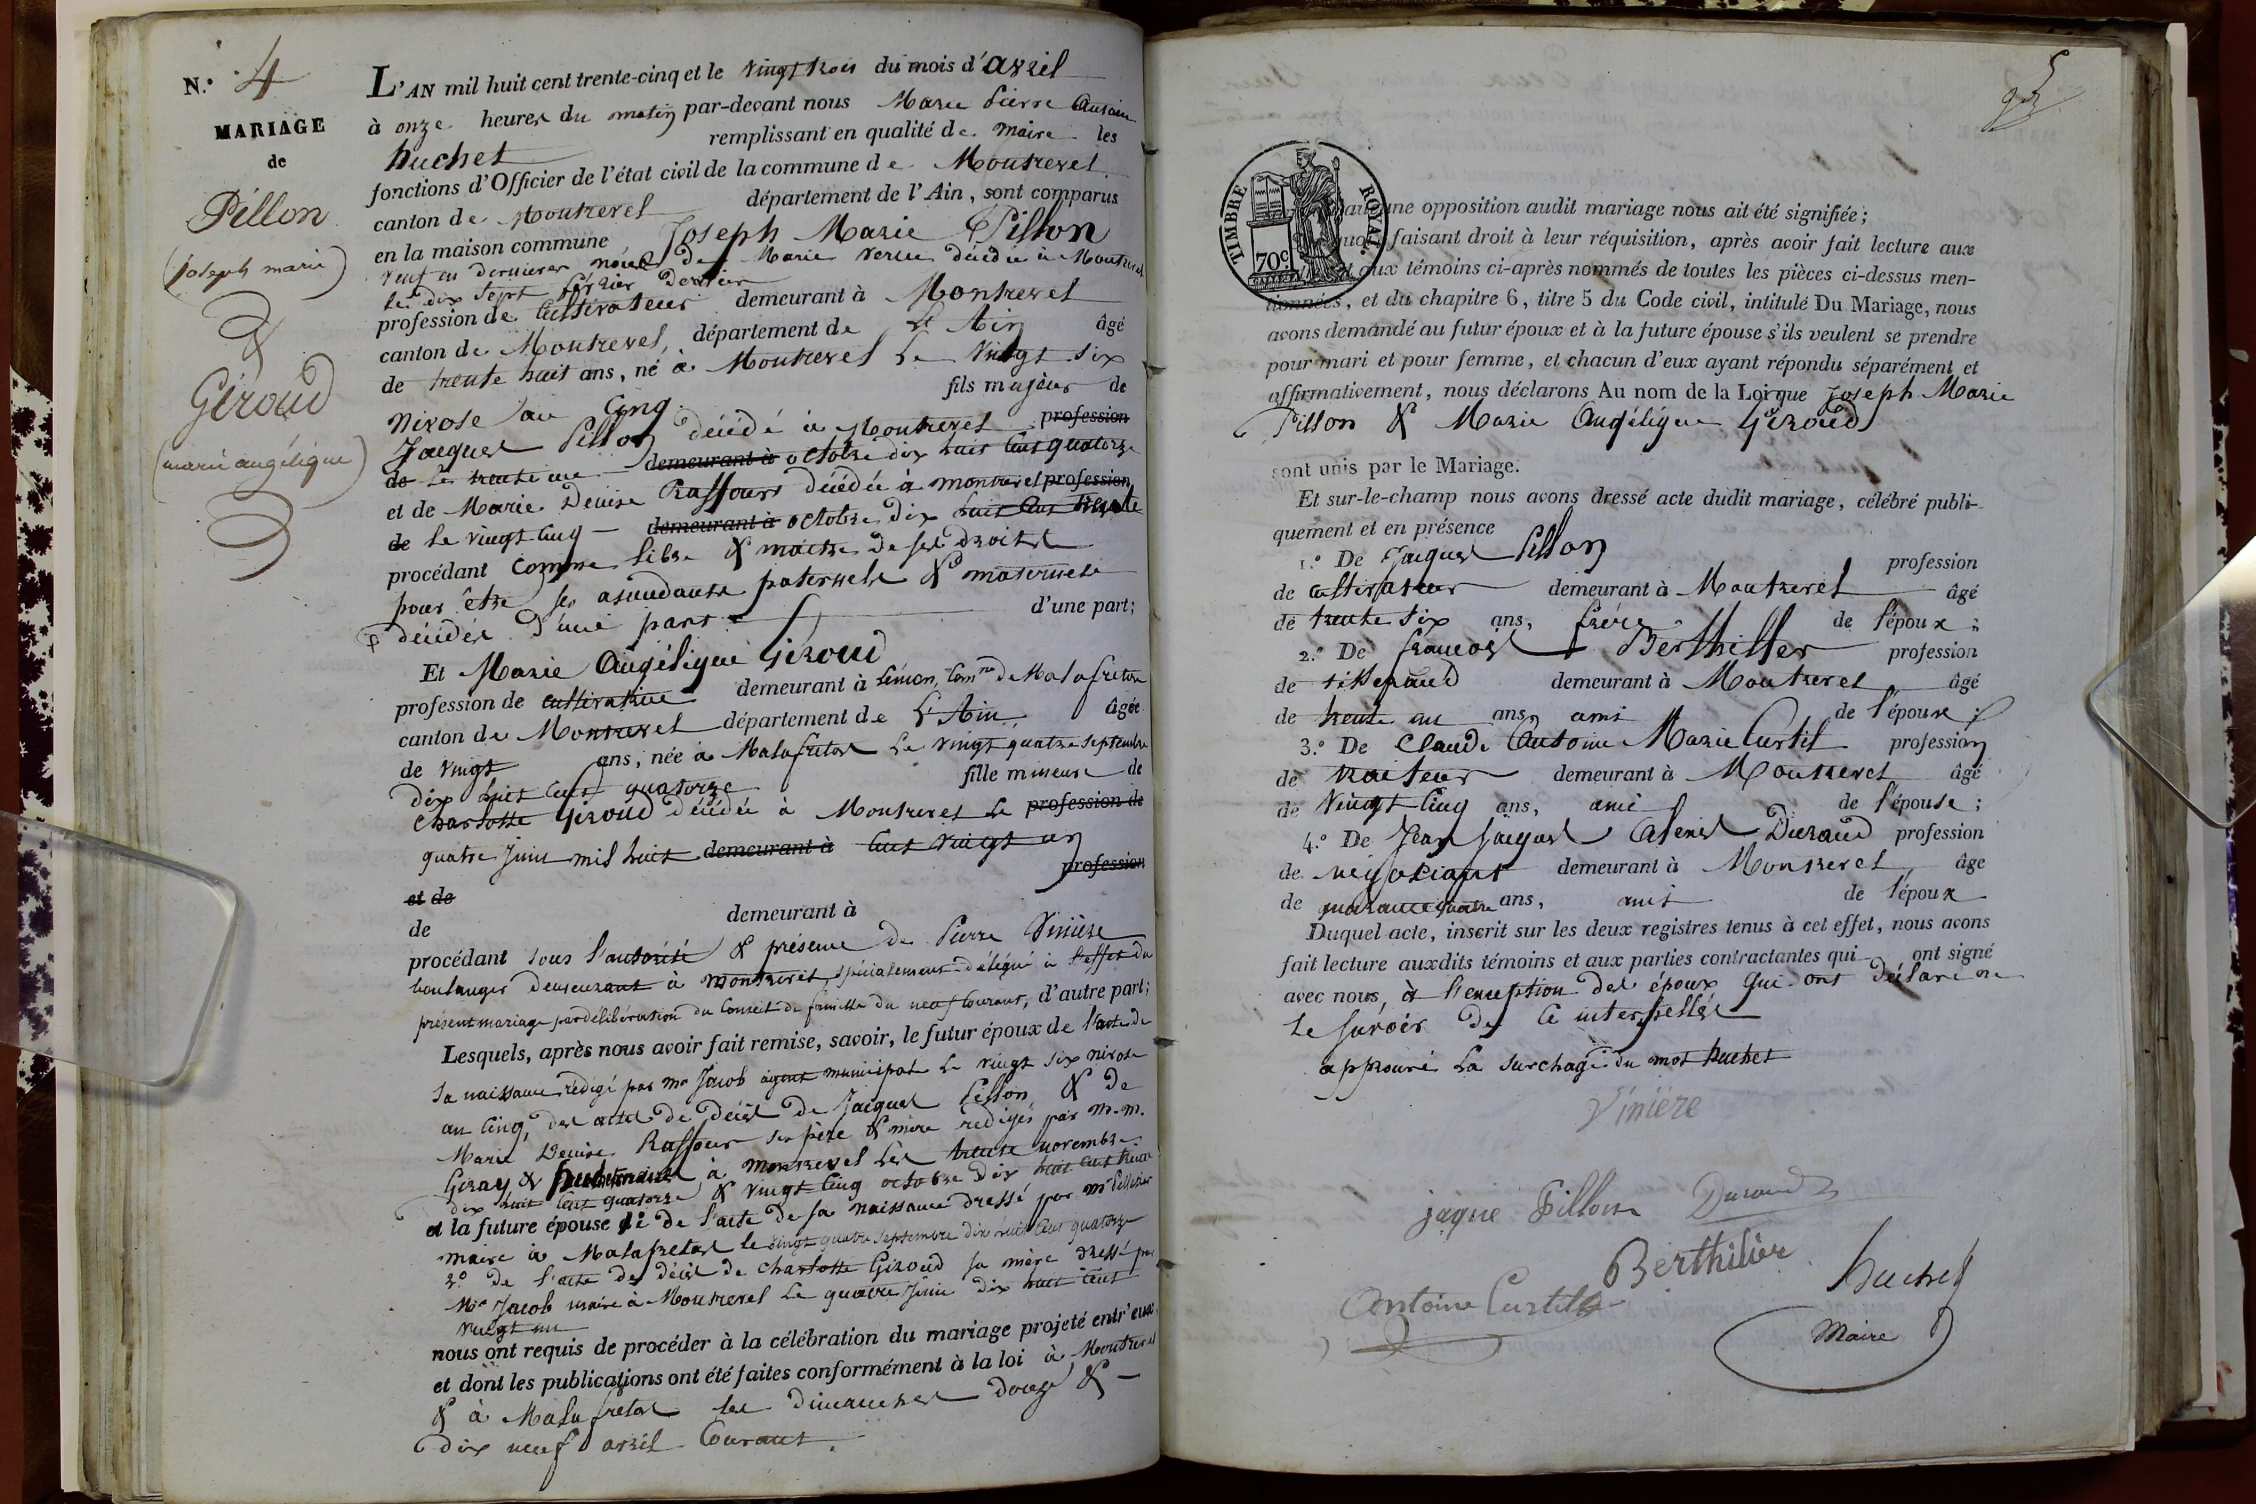 N.° 4
MARIAGE
de
Pillon
(joseph marie)
&
Giroud
(marie angélique)
L'AN mil huit cent trente-cinq et le vingt trois du mois d'avril
à onze heures du matin par-devant nous Marie Pierre Antoine
huchet remplissant en qualité de maire les
fonctions d'Officier de l'état civil de la commune de Montrevel
canton de Montrevel département de l'Ain, sont comparus
en la maison commune Joseph Marie Pillon
veuf en dernieres noces de Marie décédée à Montrevel
le dix sept février dernier
profession de Cultivateur demeurant à Montrevel
canton de Montrevel, département de L'Ain âgé
de trente huit ans, né à Montrevel le vingt six
nivose an cinq fils majeur de
Jacques Pillon décédé à Montrevel profession
de le trente une demeurant à octobre dix huit cent quatorze
et de Marie Denise Raffour décédée à montrevel profession
de le vingt cinq demeurant à octobre dix huit cent trente
procédant comme libre & maitre de ses droits
pour être ses ascendants paternels & maternels
décédés d'une part d'une part;
Et Marie Angélique Giroud
profession de cultivatrice demeurant à Com.ne de Malafretaz
canton de Montrevel département de L'Ain, âgée
de vingt ans, née à Malafretaz le vingt quatre septembre
dix huit cent quatorze fille mineure de
Charlotte Giroud décédée à Montrevel le profession de
quatre Juin mil huit demeurant à cent vingt un
et de profession
de demeurant à
procédant sous l'autorité & présence de Pierre Vinière
boulanger demeurant à Montrevel, spécialement délégué à l'effet du
présent mariage par délibération du Conseil de famille du neuf Courant, d'autre part;
Lesquels, après nous avoir fait remise, savoir, le futur époux de l'acte de
sa naissance rédigé par mr Jacob agent municipal le vingt six nivose
an cinq, des actes de décès de Jacques Pillon & de
Marie Denise Raffour ses père & mère rédigés par m.m.
Giray & huchet maires à Montrevel les trente novembre
dix huit cent quatorze & vingt cinq octobre dix huit cent trente
et la future épouse 1° de l'acte de sa naissance dressé par mr
maire à Malafretaz le vingt quatre septembre dix huit cent quatorze
2° de l'acte de décès de Charlotte Giroud sa mère dressé par
Mr Jacob maire à Montrevel le quatre Juin dix huit cent
vingt un
nous ont requis de procéder à la célébration du mariage projeté entr'eux
et dont les publications ont été faites conformément à la loi à Montrevel
& à Malafretaz les dimanches douze &
dix neuf avril Courant.
5
TIMBRE ROYAL
70c
aucune opposition audit mariage nous ait été signifiée;
quoi faisant droit à leur réquisition, après avoir fait lecture aux
et aux témoins ci-après nommés de toutes les pièces ci-dessus men-
tionnées, et du chapitre 6, titre 5 du Code civil, intitulé Du Mariage, nous
avons demandé au futur époux et à la future épouse s'ils veulent se prendre
pour mari et pour femme, et chacun d'eux ayant répondu séparément et
affirmativement, nous déclarons Au nom de la Loi que Joseph Marie
Pillon & Marie Angélique Giroud
sont unis par le Mariage.
Et sur-le-champ nous avons dressé acte dudit mariage, célébré publi-
quement et en présence
1.° De Jacques Pillon profession
de cultivateur demeurant à Montrevel âgé
de trente six ans, frère de l'époux;
2.° De françois Berthillier profession
de tisserand demeurant à Montrevel âgé
de trente un ans, ami de l'époux;
3.° De Claude Antoine Marie Curtil profession
de traiteur demeurant à Montrevel âgé
de vingt cinq ans, ami de l'épouse;
4.° De Jean Jacques Alexis Durand profession
de négociant demeurant à Montrevel, âgé
de quarante quatre ans, ami de l'époux
Duquel acte, inscrit sur les deux registres tenus à cet effet, nous avons
fait lecture auxdits témoins et aux parties contractantes qui ont signé
avec nous, à l'exception des époux qui ont déclaré ne
le savoir de ce interpellés
approuvé la surchage du mot huchet
Vinière
jaque Pillon Durand
Berthilier huchet
Antoine Curtil
Maire